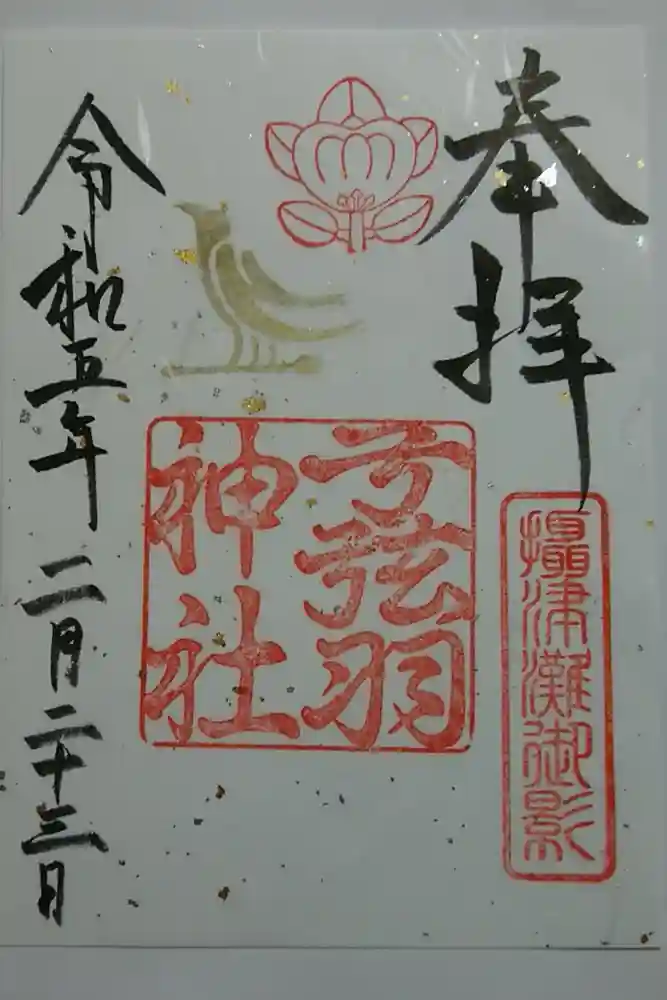 奉拝
攝津灘御影
弓弦羽
神社
令和五年二月二十三日